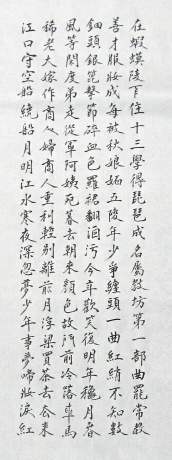 在蝦蟆陵下住十三學得琵琶成名屬教坊第一部曲罷常教
善才服妝成每被秋娘妬五陵年少爭纏頭一曲紅綃不知數
鈿頭銀篦擊節碎血色羅裙翻酒污今年歡笑復明年穐月春
風等閑度弟走從軍阿姨死暮去朝來顏色故門前冷落車馬
稀老大嫁作商人婦商人重利輕別離前月浮梁買茶去去來
江口守空船繞船月明江水寒夜深忽夢少年事夢啼妝淚紅